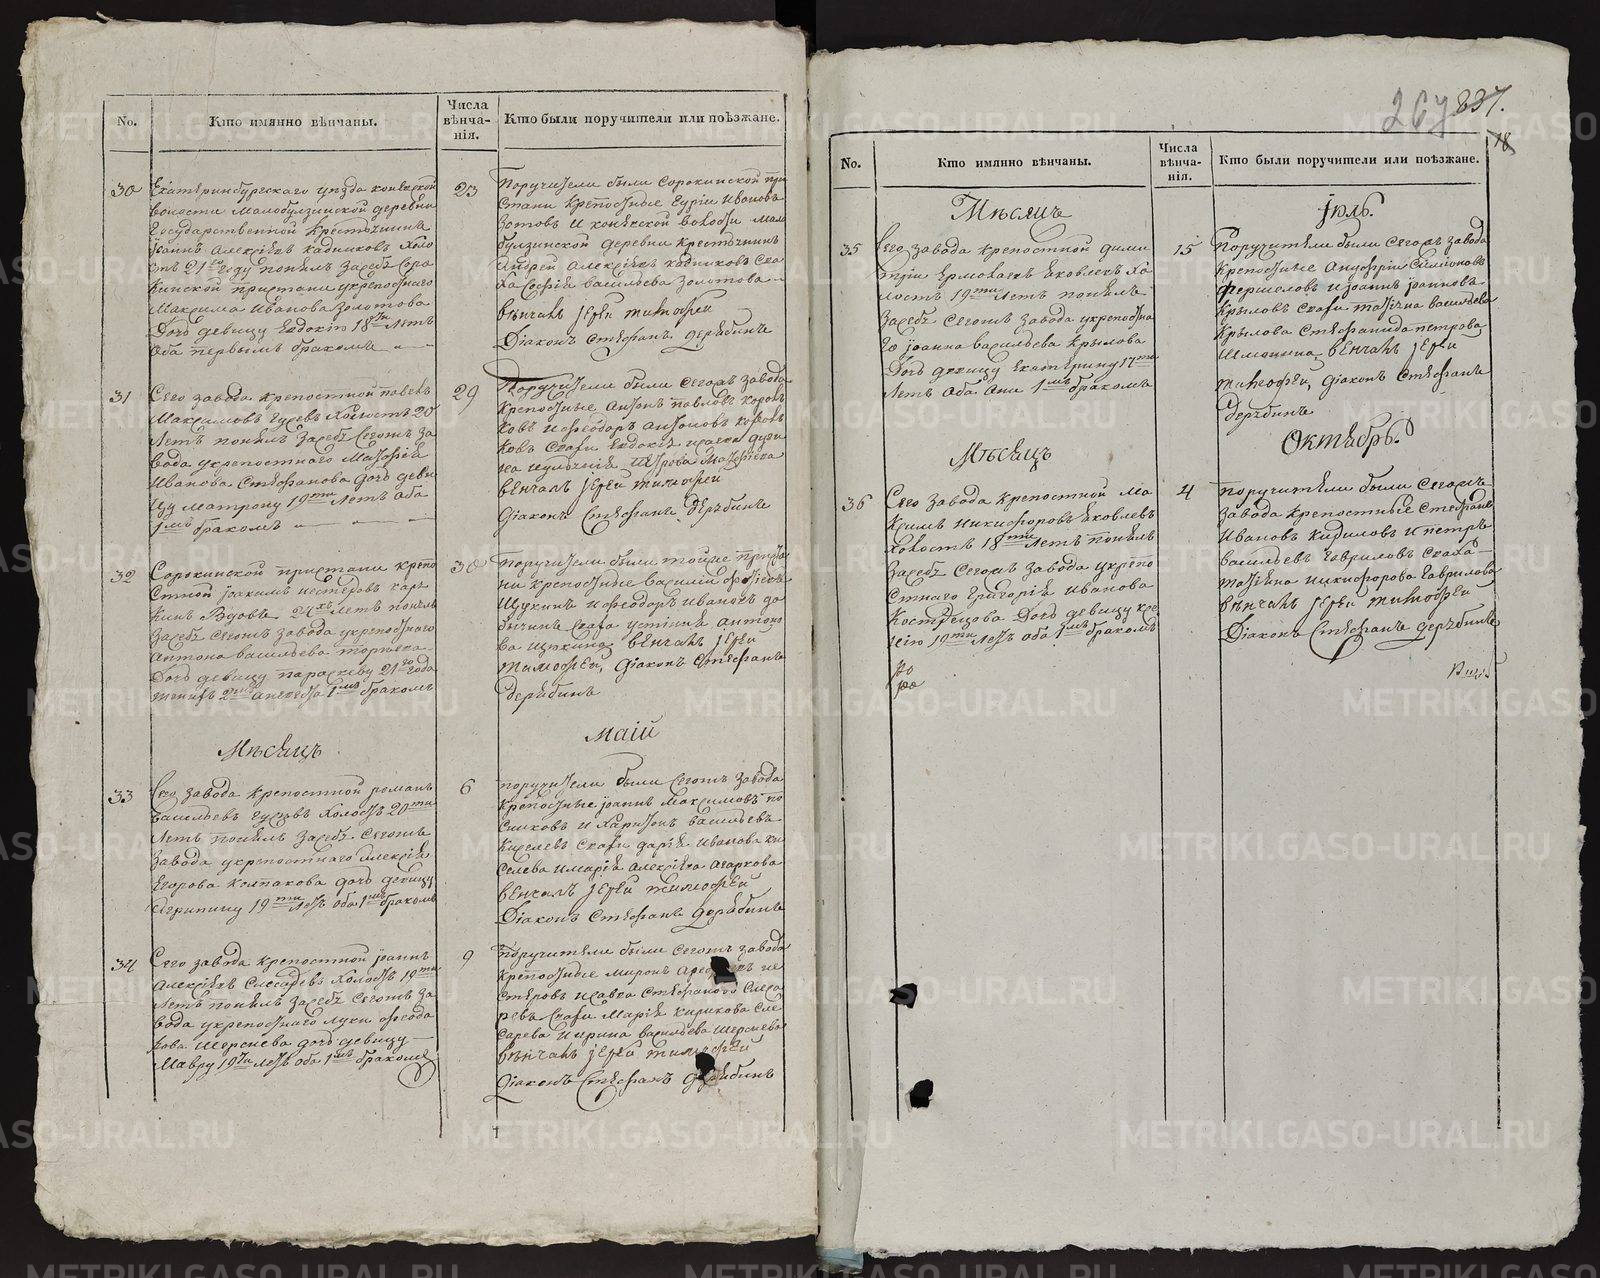 No.
Кто имянно вѣнчаны.
Числа
вѣнча-
нія.
Кто были поручители или поѣзжане.
30
Екатеринбургскаго уѣзда
волости Малобулзинской деревни
Государственной крестьянинъ
Іоаннъ Алексѣевъ Кадниковъ холо
стъ 21го году понялъ засебѣ Соро
кинской пристани укрепостнаго
Максима Иванова Золотова
дочь девицу Евдокію 18ти летъ
оба первымъ бракомъ
23
Поручители были Сорокинской при
стани крепостные Иванова
Зотовъ и волости Мало
булзинской деревни крестьянинъ
Андрей Алексѣевъ Кадниковъ сва
ха Софія Васильева Золотова
вѣнчалъ іерей Тимофей
Діаконъ Стефанъ Дерябинъ
31
Сего завода крепостной Павелъ
Максимовъ Гусевъ холостъ 20
летъ понялъ засебѣ сегожъ за
вода укрепостнаго Матфѣя
Иванова Стефанова дочь деви
цу Матрону 19ти летъ оба
1мъ бракомъ
29
Поручители были сегожъ завода
крепостные Антонъ Павловъ
ковъ и Феодоръ Антоновъ
ковъ свахи Евдокія
Петрова Матфѣева
вѣнчалъ іерей Тимофей
Діаконъ Стефанъ Дерябинъ
32
Сорокинской пристани крепо
стной Іоакимъ Нестеровъ
кинъ вдовъ летъ понялъ
засебѣ сегожъ завода укрепостнаго
Антона Васильева
дочь девицу Параскеву 21го года
женихъ 2мъ а невеста 1мъ бракомъ
30
Поручители были тоеже приста
ни крепостные Василій
Щукинъ и Феодоръ Ивановъ до
бычинъ сваха Устинья Антоно
ва Щукина вѣнчалъ іерей
Тимофей, Діаконъ Стефанъ
Дерябинъ
Мѣсяцъ
Маій
33
Сего завода крепостной Романъ
Васильевъ Гусевъ холостъ 20ти
летъ понялъ засебѣ сегожъ
завода укрепостнаго Алексѣя
Егорова Колпакова дочь девицу
Агрипину 19ти летъ оба 1мъ бракомъ
6
Поручители были сегожъ завода
крепостные Іоаннъ Максимовъ По
сниковъ и Харитонъ Васильевъ
Киселевъ свахи Дарія Иванова Ки
селева и Марія Алексѣева Агаркова
вѣнчалъ іерей Тимофей
Діаконъ Стефанъ Дерябинъ
34
Сего завода крепостной Іоаннъ
Алексѣевъ Слесаревъ холостъ 19ти
летъ понялъ засебѣ сегожъ за
вода укрепостнаго Луки Феодо
рова дочь девицу
Мавру 19ти летъ оба 1мъ бракомъ
9
Поручители были сегожъ завода
крепостные Миронъ Не
стеровъ и Савва Стефановъ Слеса
ревъ свахи Марія Кирикова Сле
сарева и Ирина Васильева
вѣнчалъ іерей Тимофей
Діаконъ Стефанъ Дерябинъ
267 837.
18
No.
Кто имянно вѣнчаны.
Числа
вѣнча-
нія.
Кто были поручители или поѣзжане.
Мѣсяцъ
Іюль.
35
Сего завода крепостной Дими
трій Ермолаевъ Яковлевъ хо
лостъ 19ти летъ понялъ
засебѣ сегожъ завода укрепостна
го Іоанна Васильева Крылова
дочь девицу Екатерину 17ти
летъ оба они 1мъ бракомъ
15
Поручители были сегожъ завода
крепостные Ануфрій Симіоновъ
и Іоаннъ Іоанновъ
Крыловъ свахи Татіана Васильева
Крылова Стефанида Петрова
вѣнчалъ іерей
Тимофей, Діаконъ Стефанъ
Дерябинъ
Мѣсяцъ
Октябрь.
36
Сего завода крепостной Ма
ксимъ Никифоровъ Яковлевъ
холостъ 18ти летъ понялъ
засебѣ сегожъ завода укрепо
стнаго Григорія Иванова
Кострецова дочь девицу Ксе
нію 19ти летъ оба 1мъ бракомъ
4
Поручители были сегожъ
завода крепостные Стефанъ
Ивановъ Кадиловъ и Петръ
Васильевъ Гавриловъ сваха
Татіана Никифорова Гаврилова
вѣнчалъ іерей Тимофей
Діаконъ Стефанъ Дерябинъ
METRIKI.GASO-URAL.RU